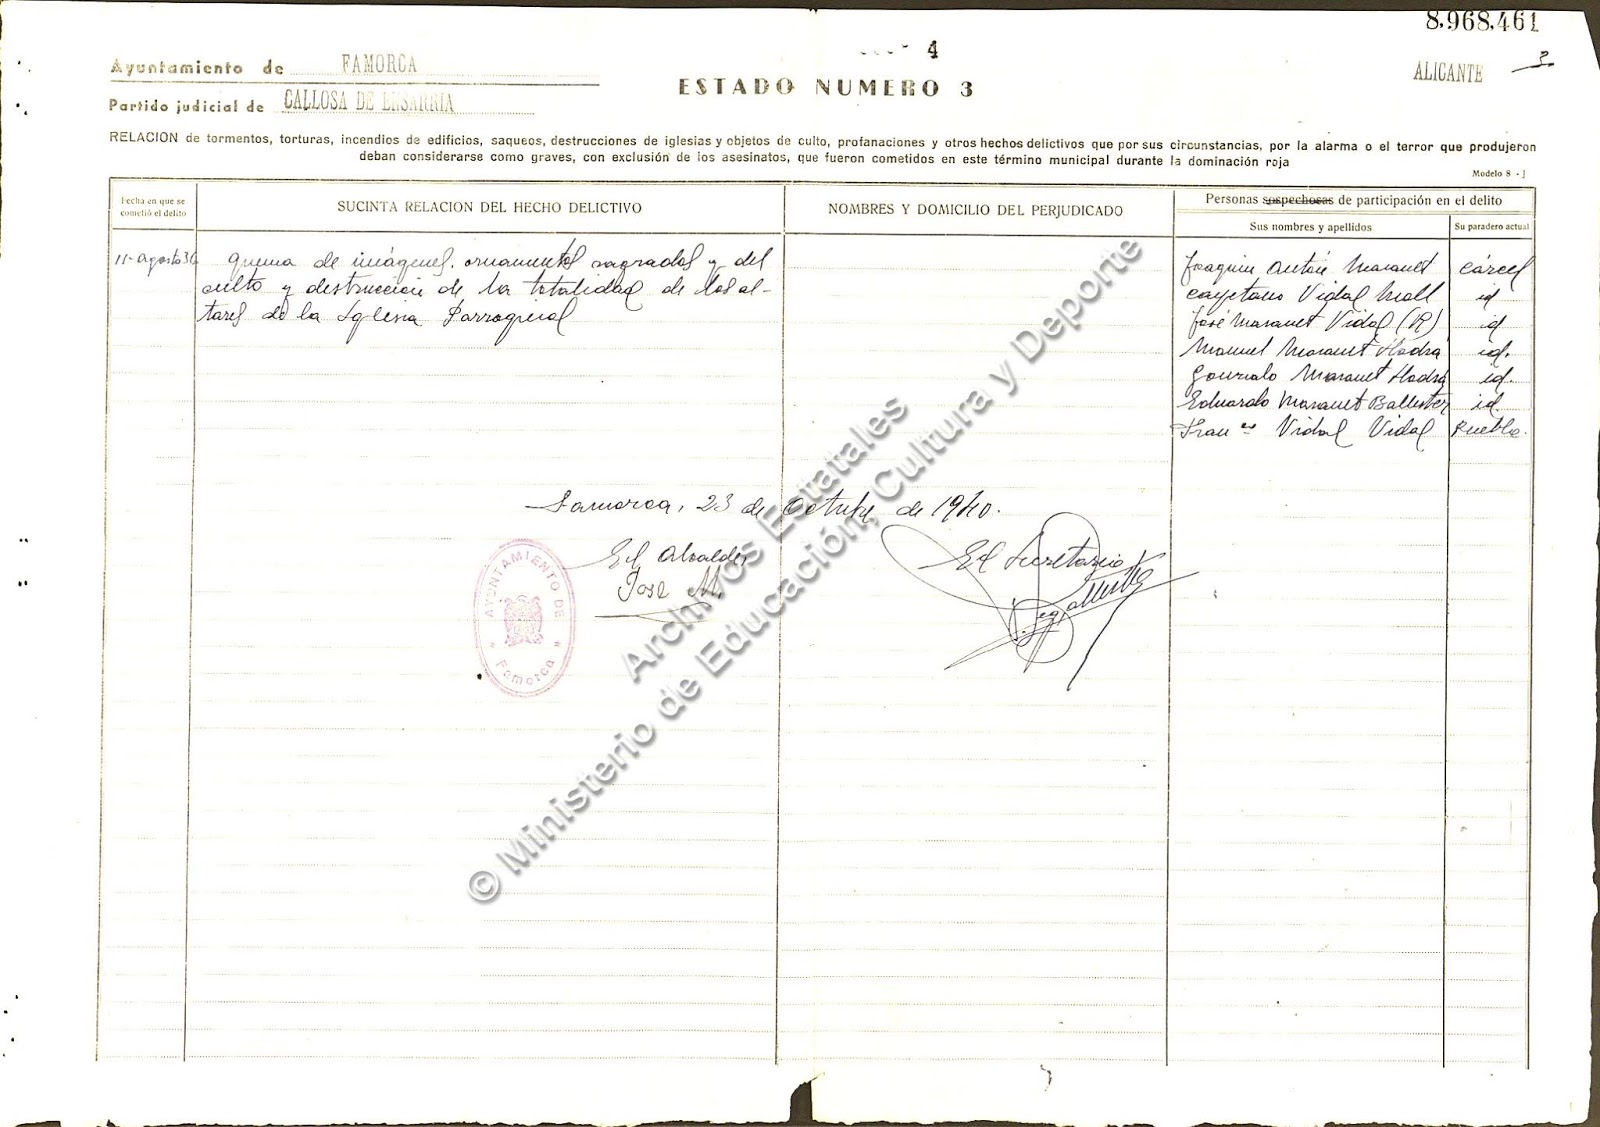 8.968.461
4
3
Ayuntamiento de FAMORCA
ESTADO NUMERO 3
ALICANTE
Partido judicial de CALLOSA DE ENSARRIA
RELACION de tormentos, torturas, incendios de edificios, saqueos, destrucciones de iglesias y objetos de culto, profanaciones y otros hechos delictivos que por sus circunstancias, por la alarma o el terror que produjeron
deban considerarse como graves, con exclusión de los asesinatos, que fueron cometidos en este término municipal durante la dominación roja
Modelo 8 - J
Fecha en que se
cometió el delito
SUCINTA RELACION DEL HECHO DELICTIVO
NOMBRES Y DOMICILIO DEL PERJUDICADO
Personas sospechosas de participación en el delito
Sus nombres y apellidos
Su paradero actual
11-Agosto 36
quema de imágenes, ornamentos sagrados y del
culto y destrucción de la totalidad de los al-
tares de la Iglesia Parroquial
Joaquin Antón Masanet cárcel
Cayetano Vidal Moll id
José Masanet Vidal (R) id
Manuel Masanet id.
Gonzalo Masanet id.
Eduardo Masanet Ballester id.
Fran co Vidal Vidal Pueblo.
Famorca, 23 de Octubre de 1940.
El Alcalde
José M.
El Secretario
AYUNTAMIENTO DE
Famorca
© Ministerio de Educación, Cultura y Deporte
Archivos Estatales